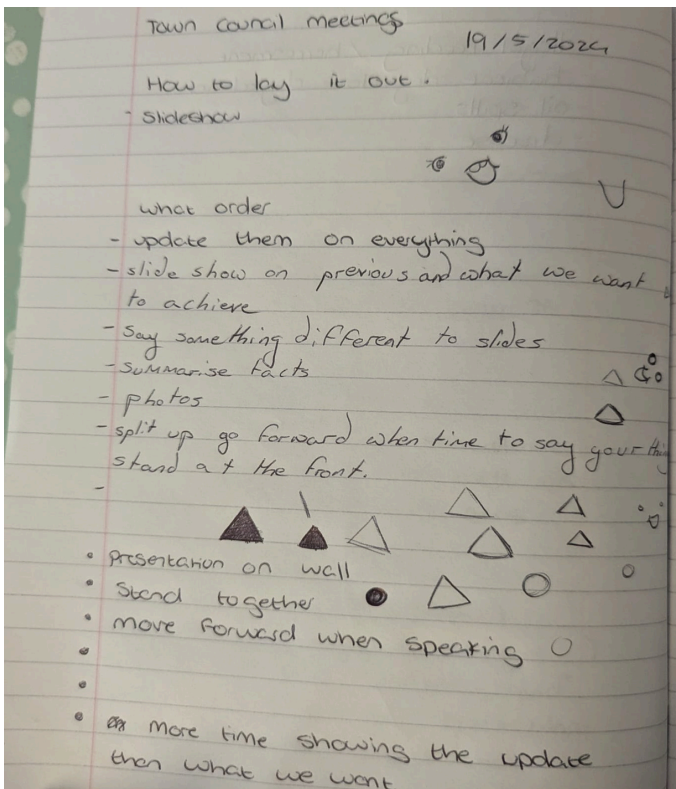 Town Council meetings
19/5/2024
How to lay it out.
- Slideshow
what order
- update them on everything
- slide show on previous and what we want
to achieve
- say something different to slides
- summarise facts
- photos
- split up go forward when time to say your
stand at the front.
-
• Presentation on wall
• Stand together
• move forward when speaking
•
•
• more time showing the update
then what we want